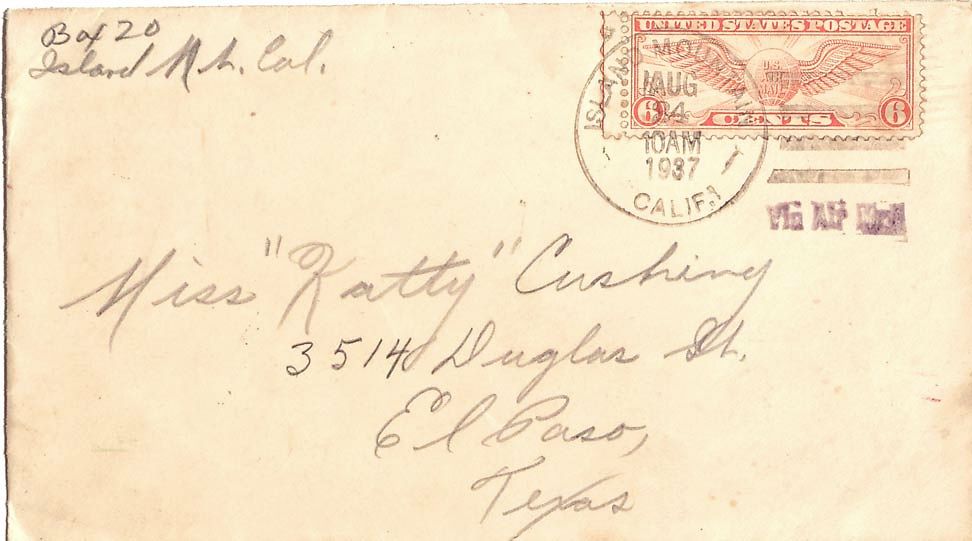 Box 20
Island Mt. Cal.
UNITED STATES POSTAGE
U.S.
AIR
MAIL
6 CENTS 6
ISLAND MOUNTAIN
AUG
24
10AM
1937
CALIF.
Via Air Mail
Miss "Katty" Cushing
3514 Duglas St.
El Paso,
Texas